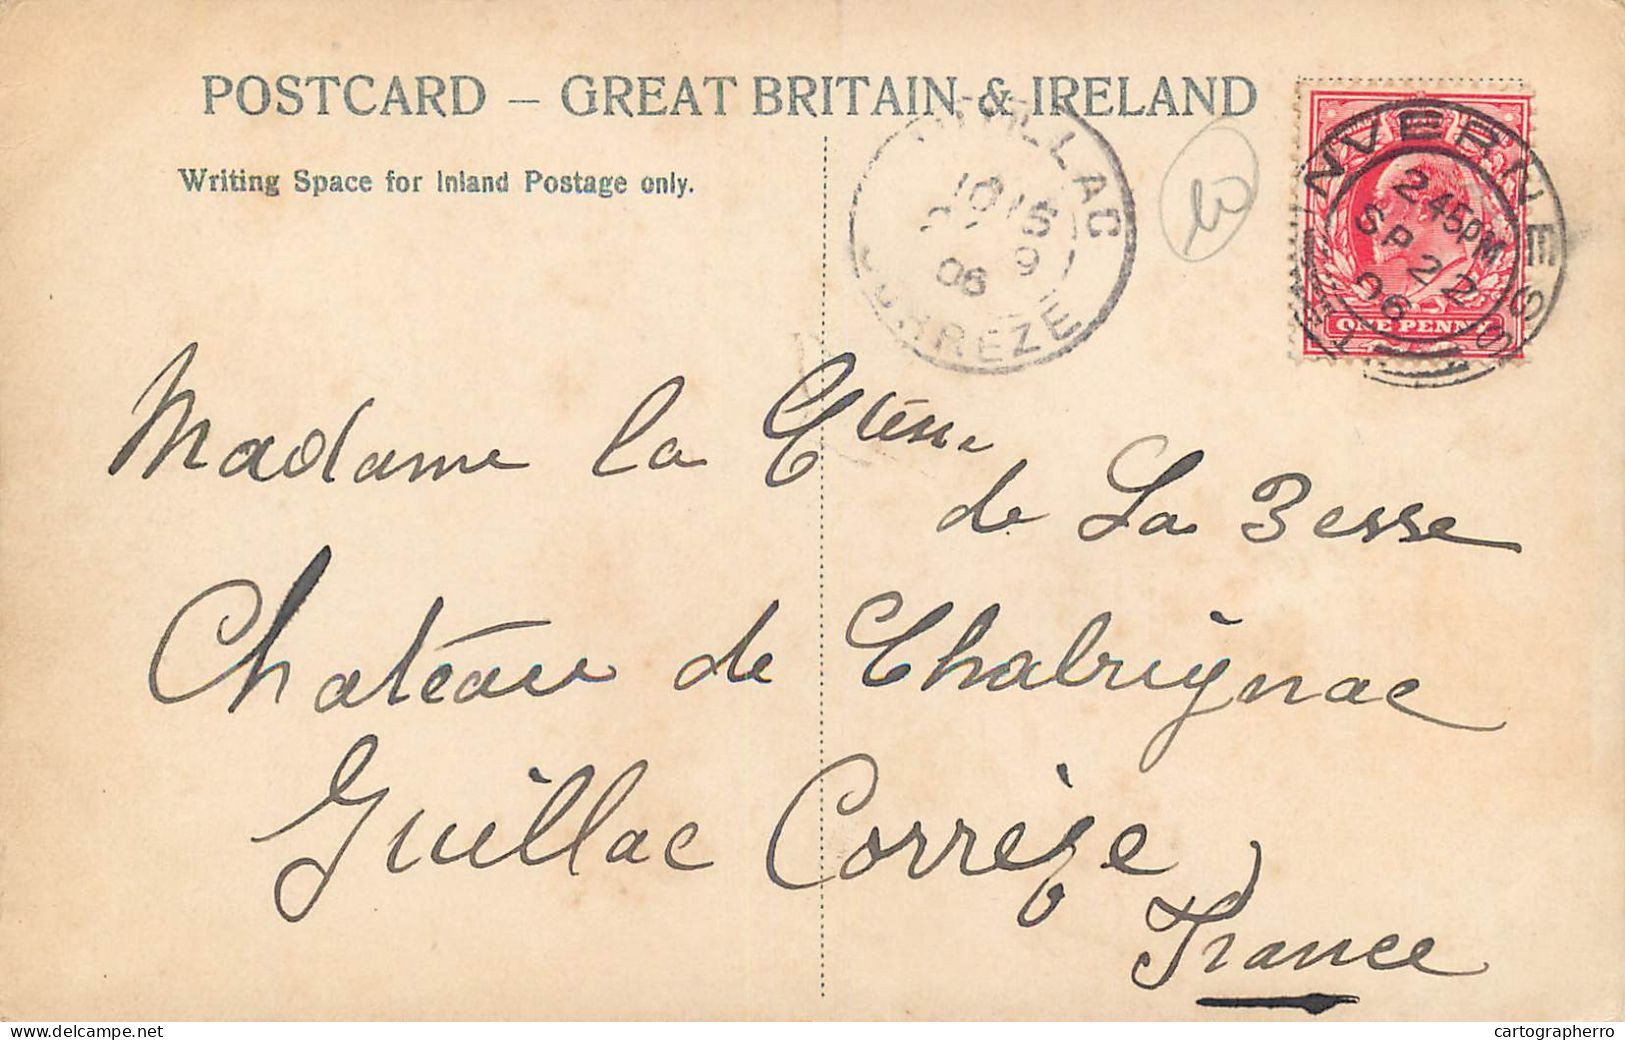 POSTCARD – GREAT BRITAIN & IRELAND
Writing Space for Inland Postage only.
LLAC
10 15
9
06
CORREZE
INVERNESS
2 45 PM
SP 22
06
ONE PENNY
Madame la Ctesse
de La Besse
Château de Chabrignac
Juillac Corrèze
France
delcampe.net
cartographerro